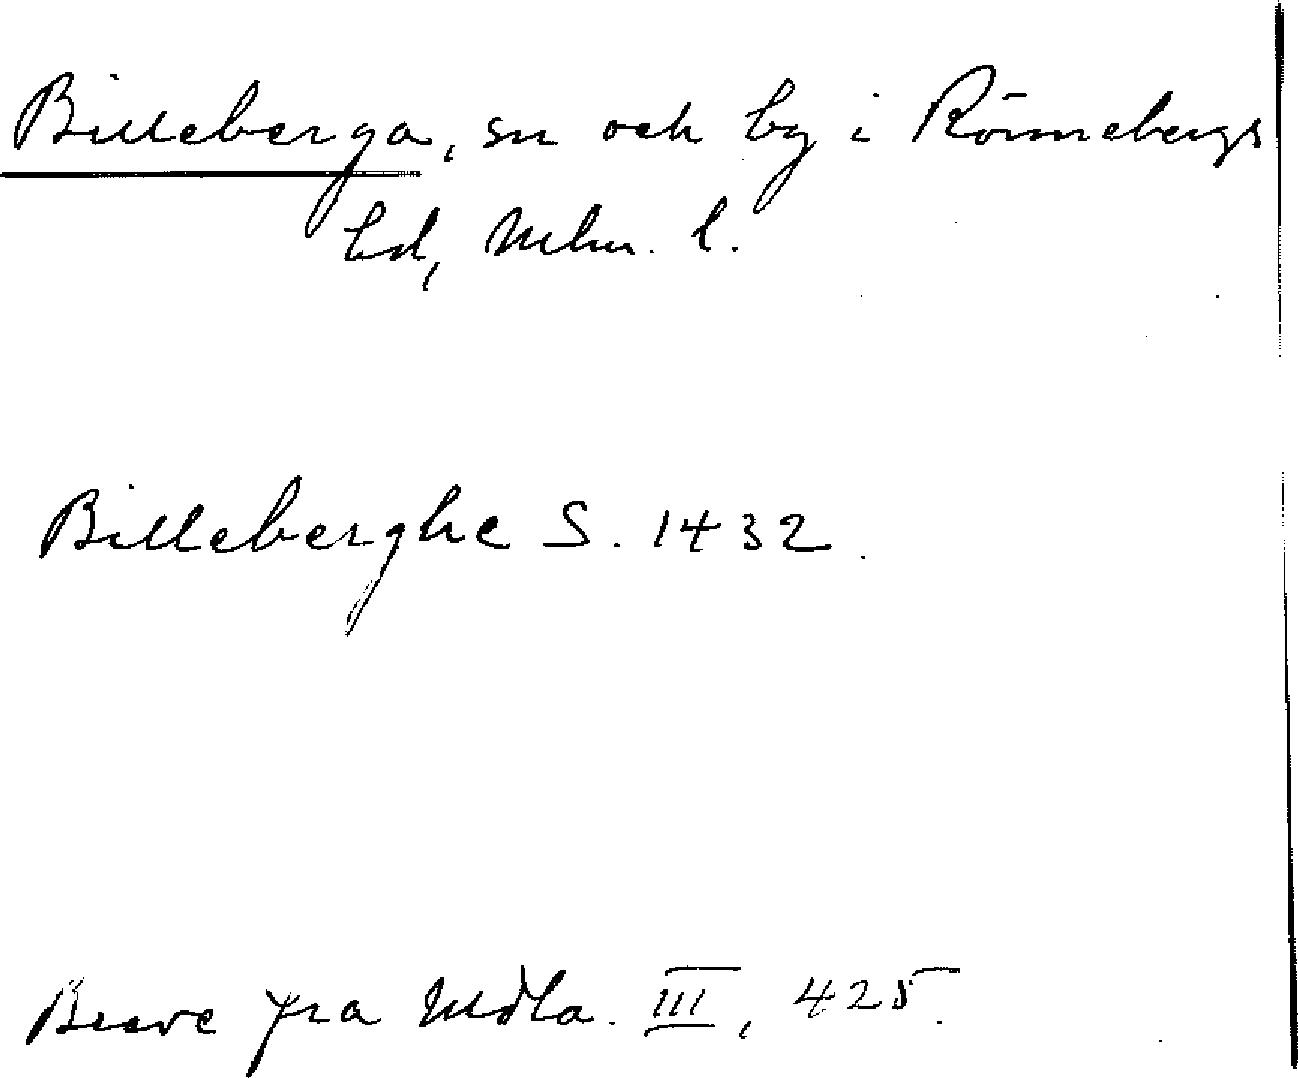 Billeberga, sn och by i Rönnebergs
hd, Mlm. l.
Billeberghe S. 1432.
Breve fra Mdla. III, 425.